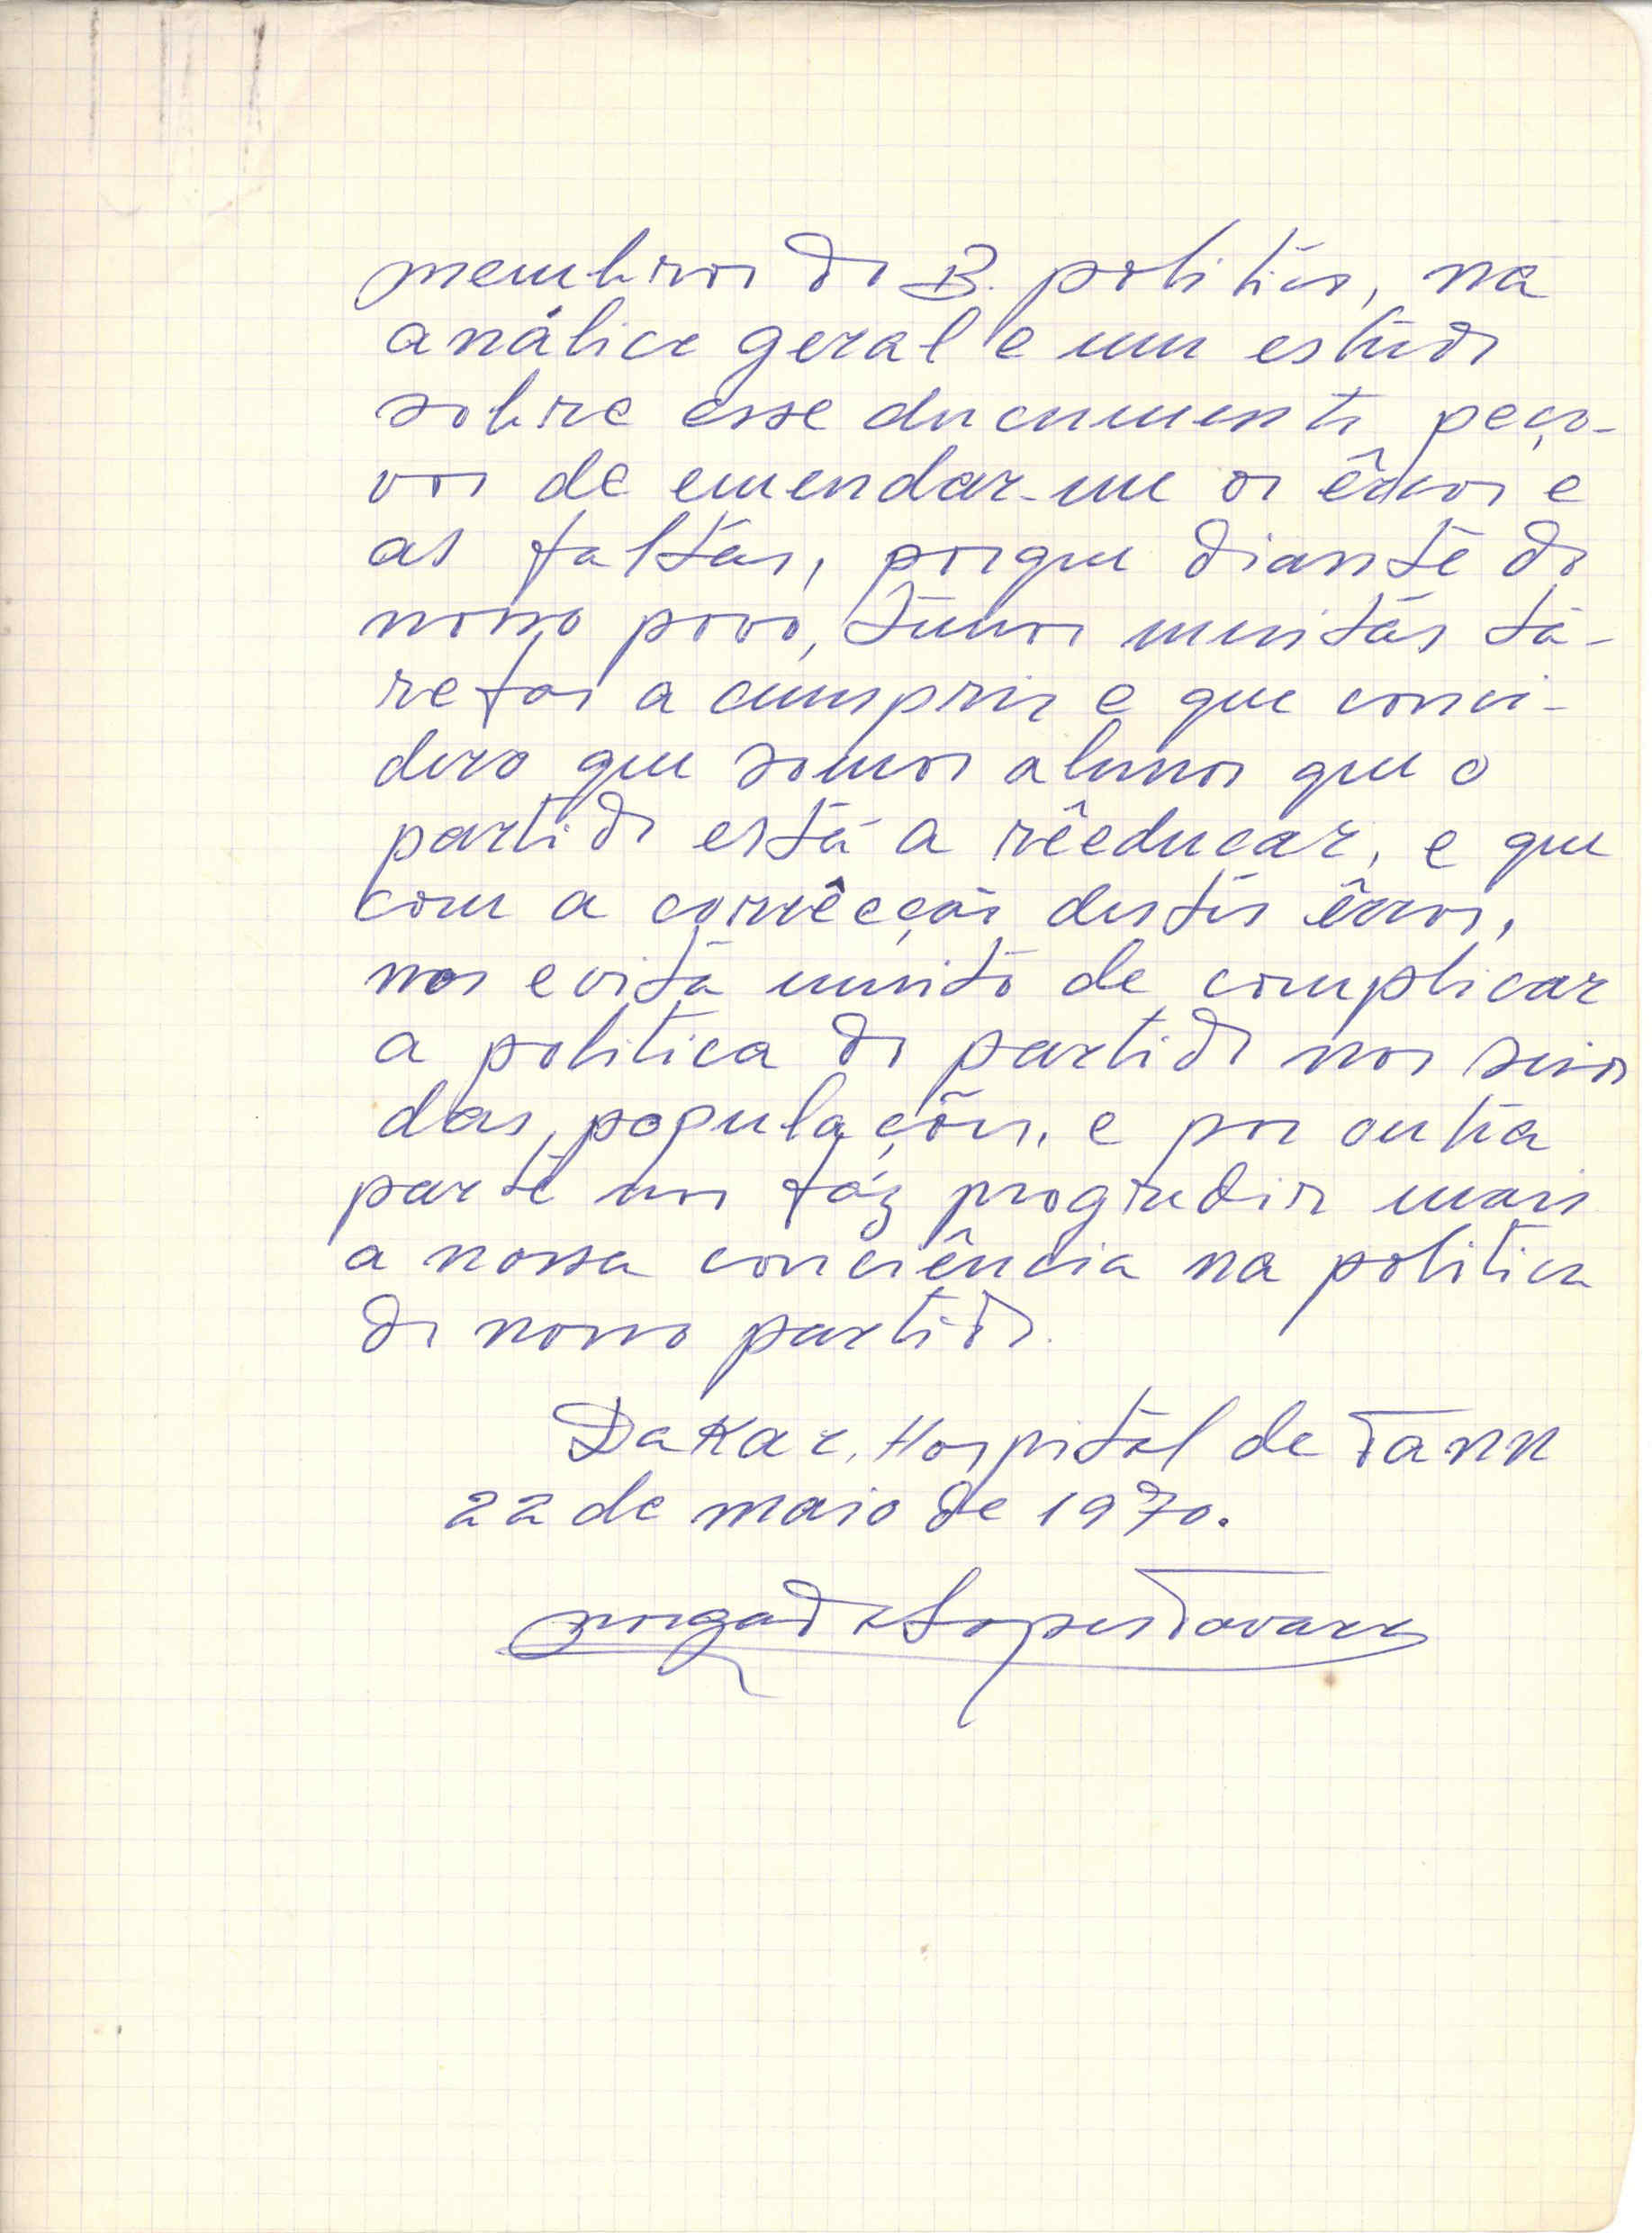 membros do B. politico, na
análice geral e um estudo
sobre esse documento peço-
vos de emendar-me os êrros e
as faltas, porque diante do
nosso povo, temos muitas ta-
refas a cumprir e que consi-
dero que somos alunos que o
partido está a rêeducar, e que
com a corrêcção destes êrros,
nos evita muito de complicar
a politica do partido nos seios
das populações, e por outra
parte nos fáz progredir mais
a nossa conciência na politica
do nosso partido.
Dakar, Hospital de Fann
22 de maio de 1970.
Morgado Lopes Tavares